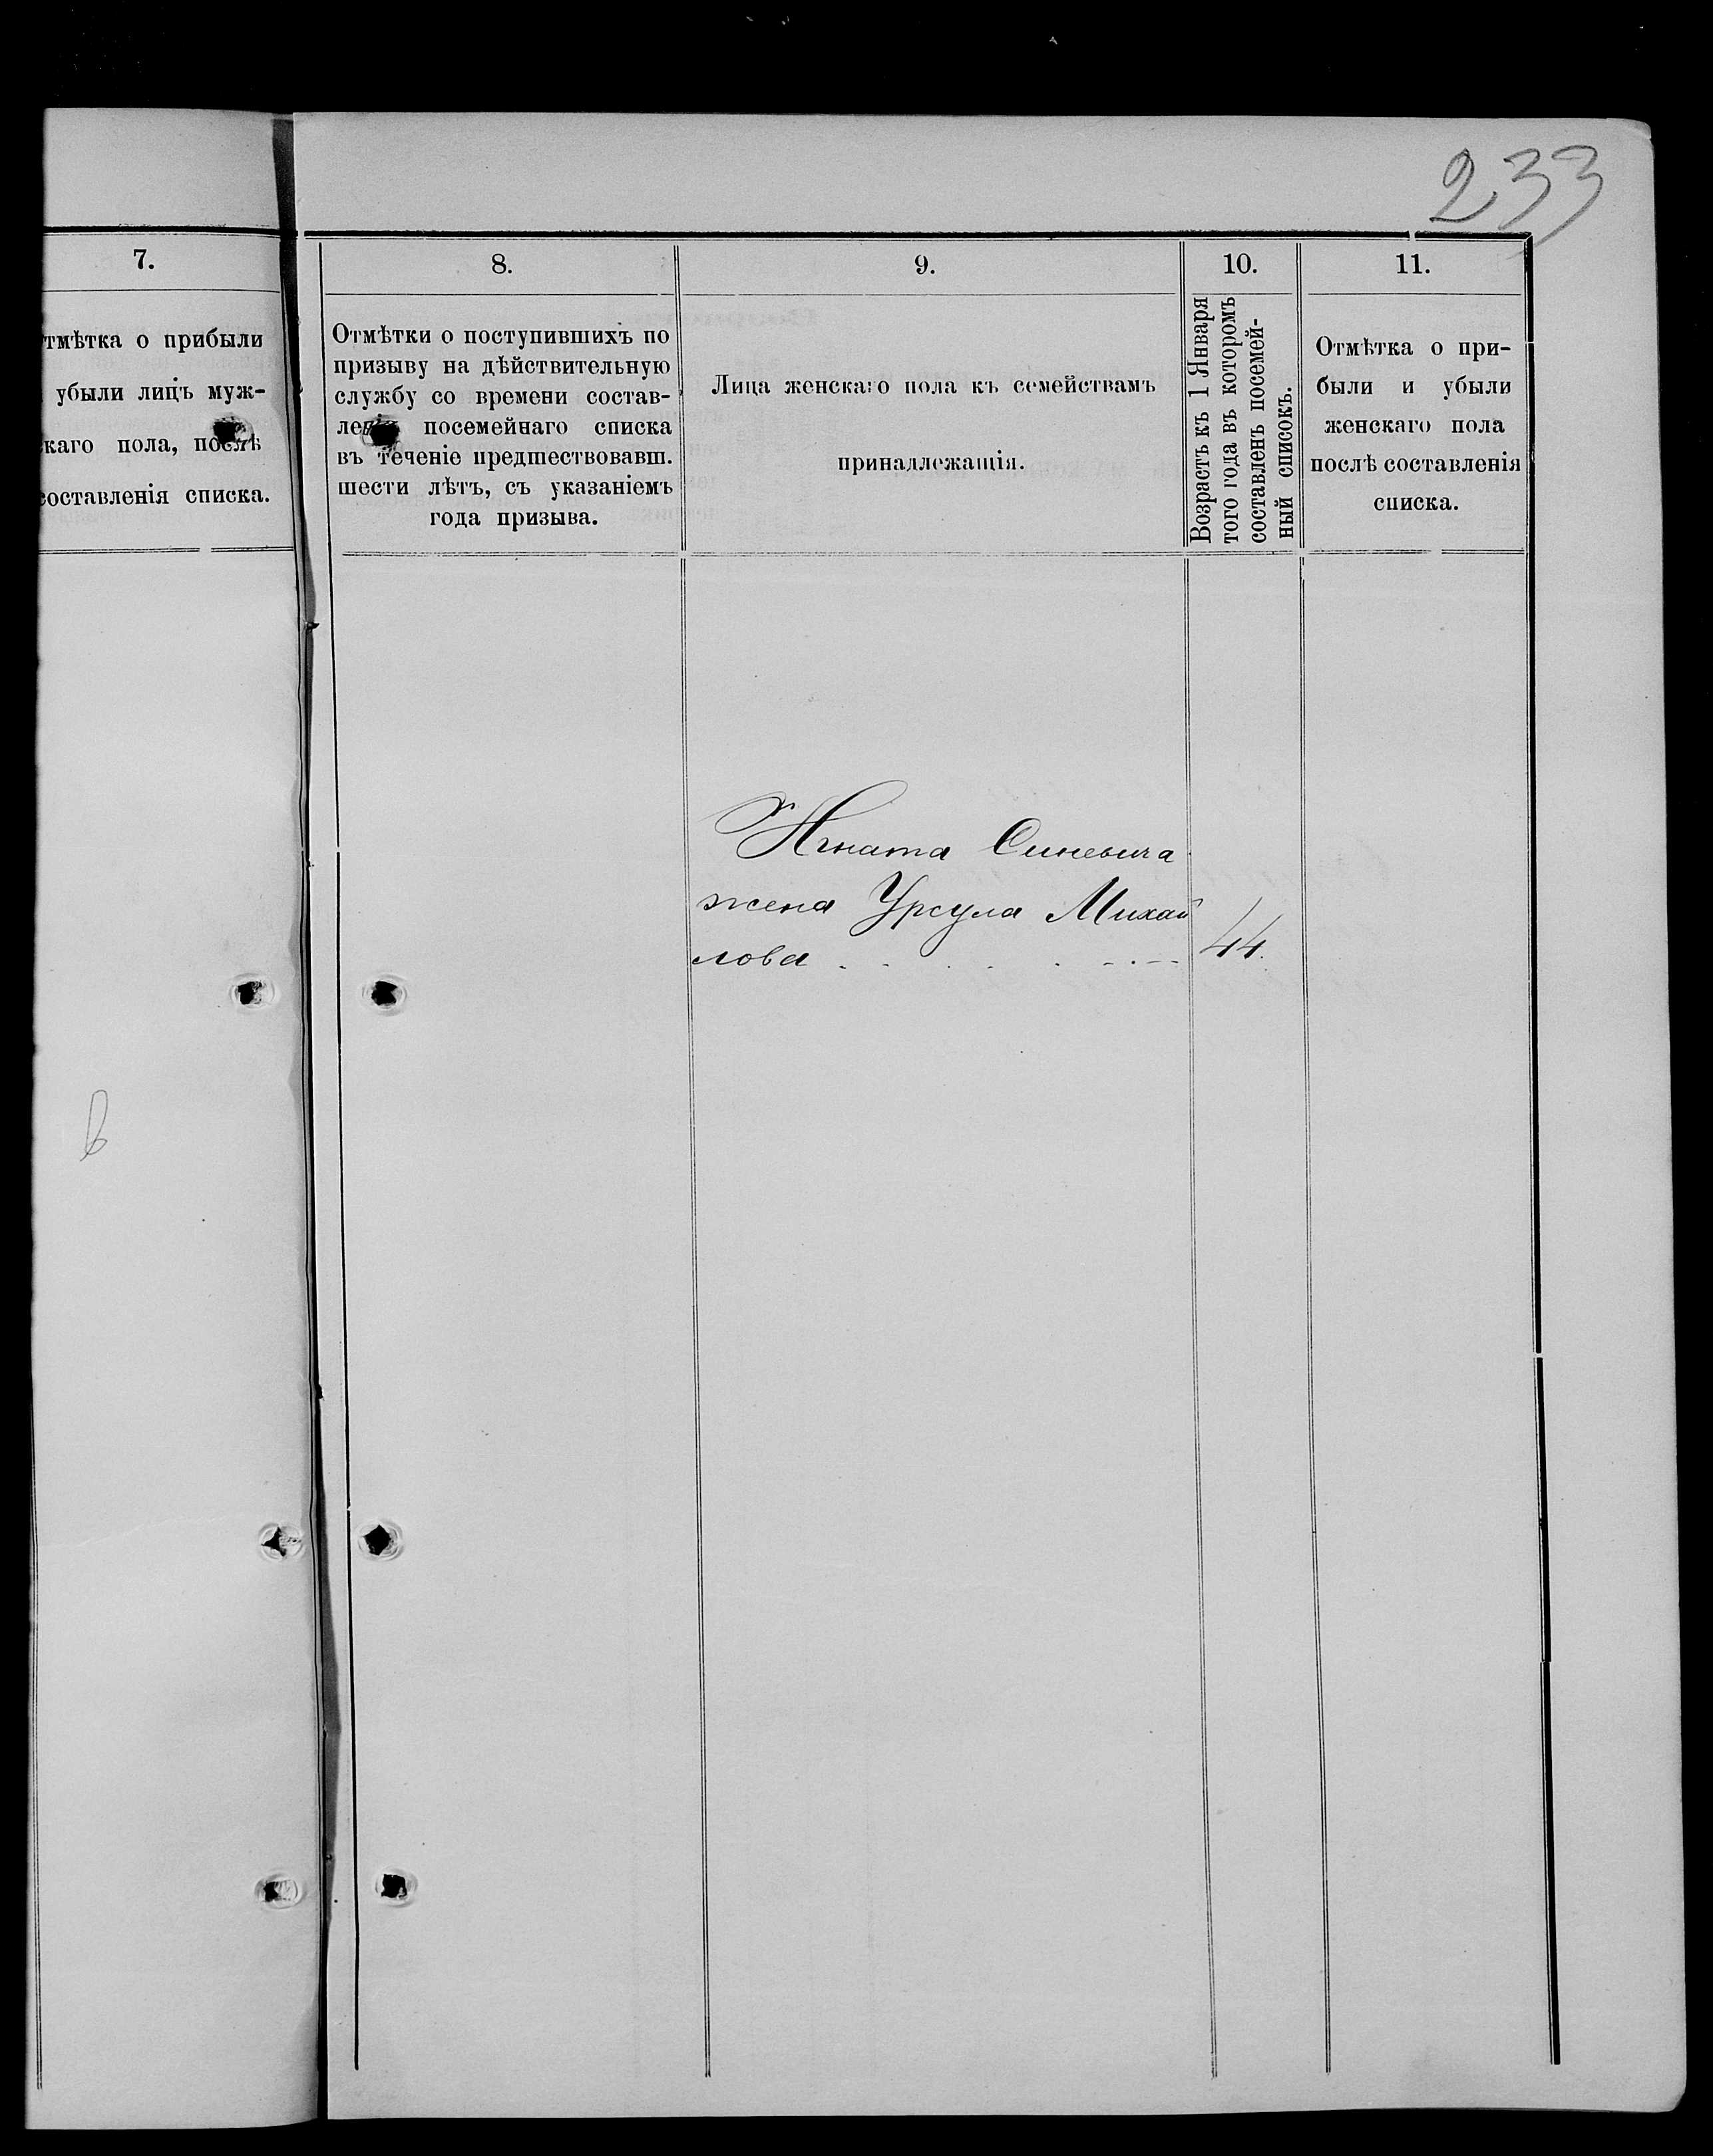 233
7.
тмѣтка о прибыли
убыли лицъ муж-
каго пола, послѣ
составленія списка.
8.
Отмѣтки о поступившихъ по
призыву на дѣйствительную
службу со времени состав-
ленія посемейнаго списка
въ теченіе предшествовавш.
шести лѣтъ, съ указаніемъ
года призыва.
9.
Лица женскаго пола къ семействамъ
принадлежащія.
10.
Возрастъ къ 1 Января
того года въ которомъ
составленъ посемей-
ный списокъ.
11.
Отмѣтка о при-
были и убыли
женскаго пола
послѣ составленія
списка.
Игната Синевича
жена Урсула Михай
лова . . . . . . - . - - 44.